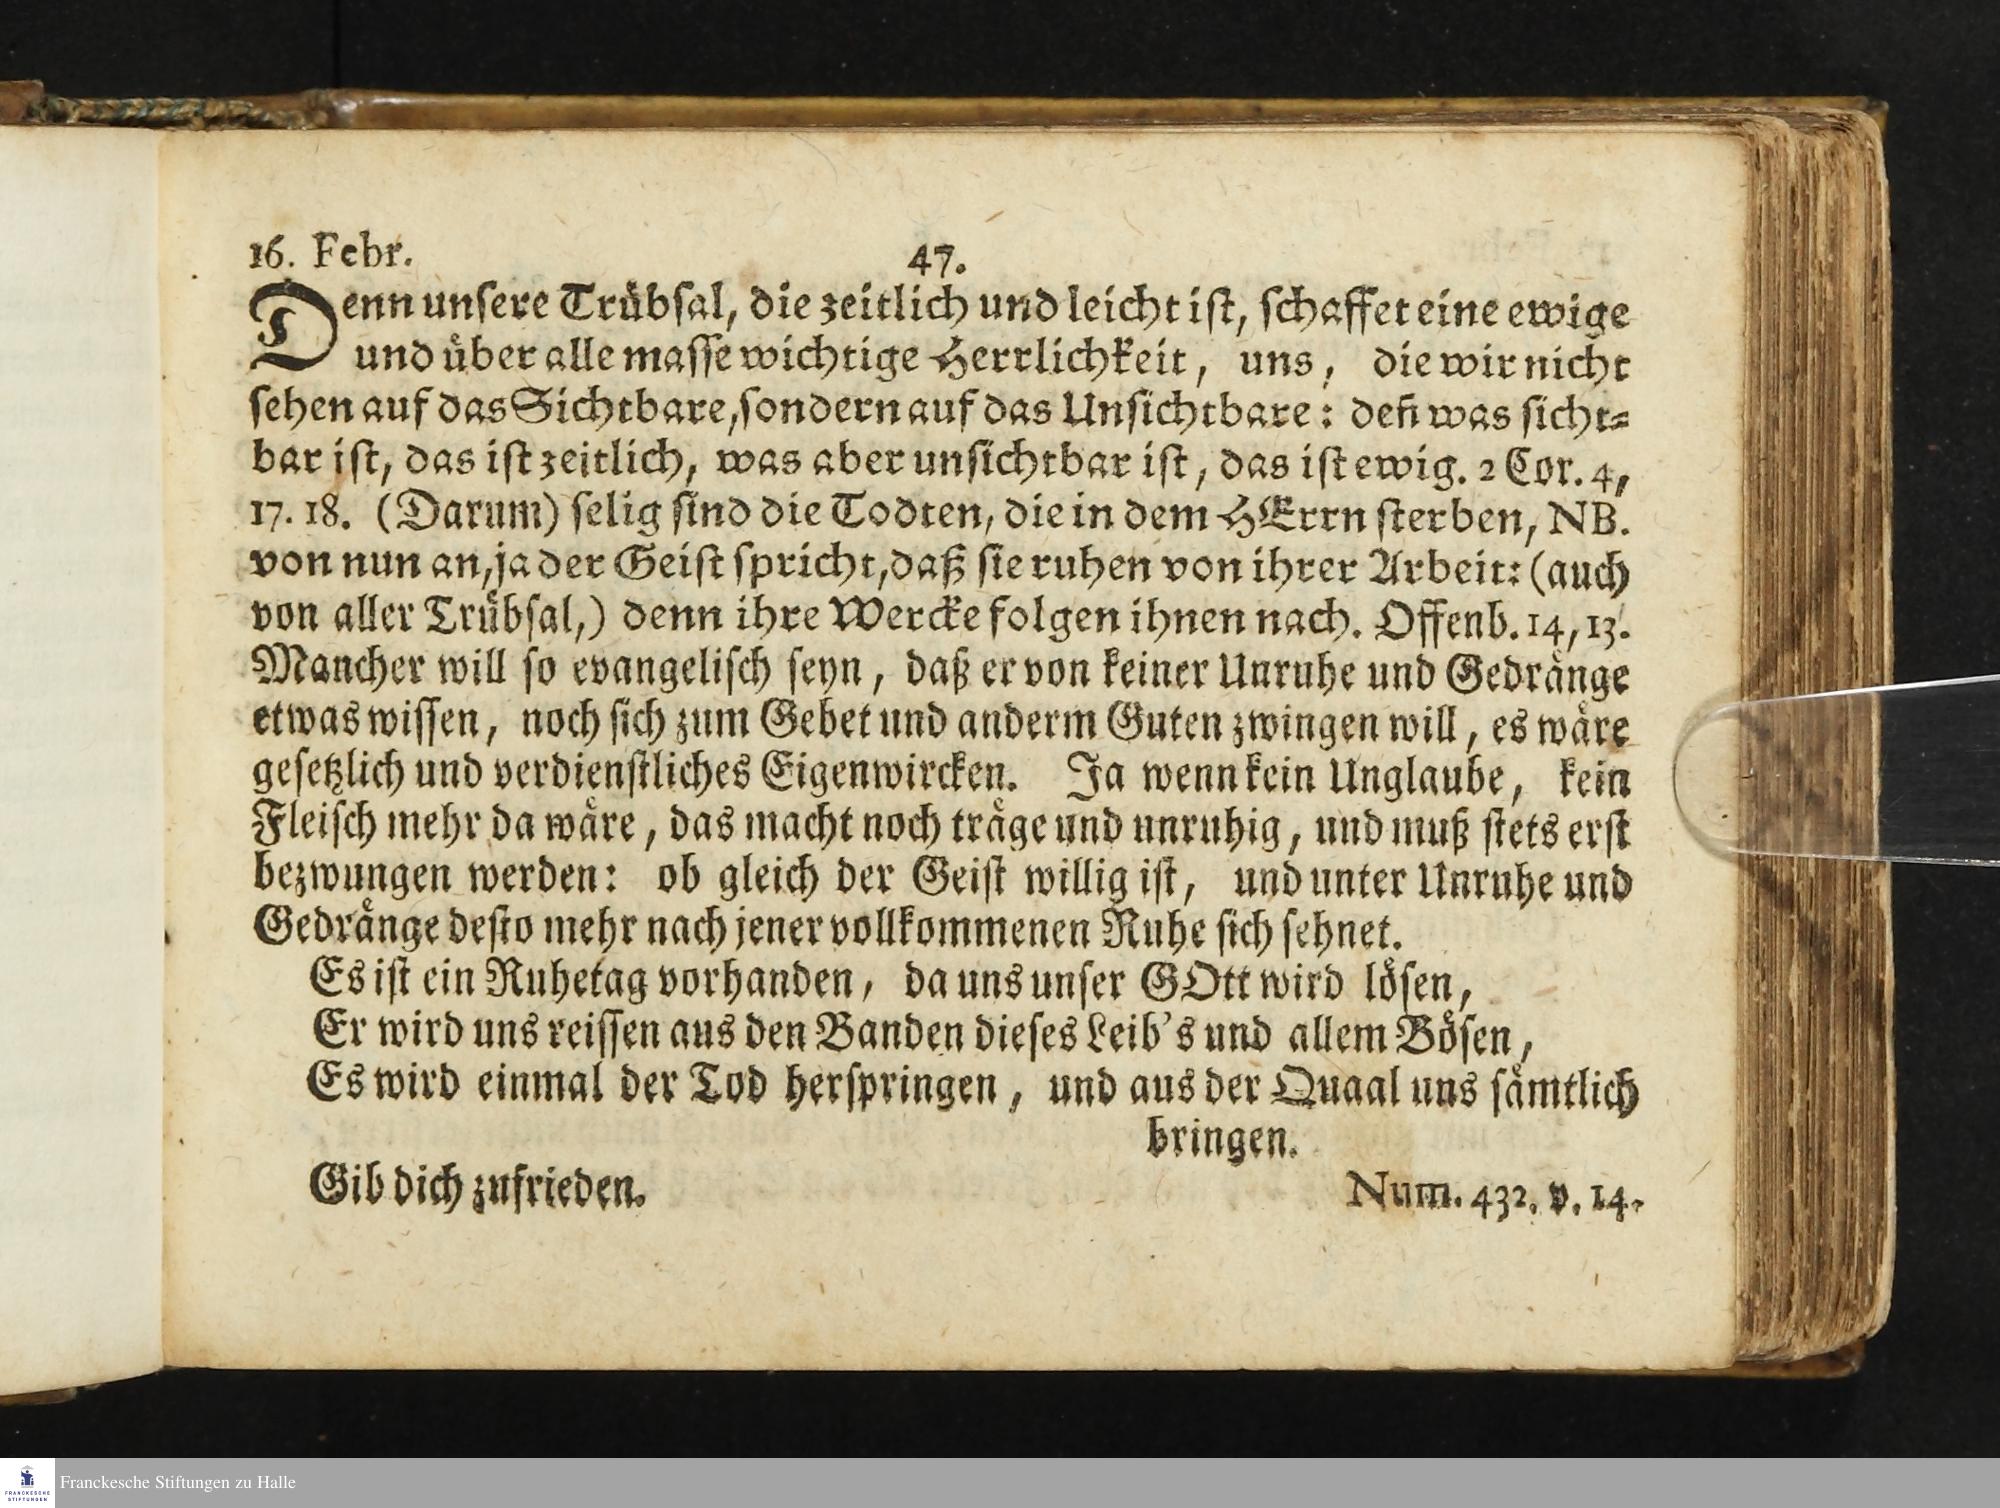 16. Febr.
47.
Denn unsere Trübsal, die zeitlich und leicht ist, schaffet eine ewige
und über alle masse wichtige Herrlichkeit, uns, die wir nicht
sehen auf das Sichtbare, sondern auf das Unsichtbare: deñ was sicht-
bar ist, das ist zeitlich, was aber unsichtbar ist, das ist ewig. 2 Cor. 4,
17. 18. (Darum) selig sind die Todten, die in dem HErrn sterben, NB.
von nun an, ja der Geist spricht, daß sie ruhen von ihrer Arbeit: (auch
von aller Trübsal,) denn ihre Wercke folgen ihnen nach. Offenb. 14, 13.
Mancher will so evangelisch seyn, daß er von keiner Unruhe und Gedränge
etwas wissen, noch sich zum Gebet und anderm Guten zwingen will, es wäre
gesetzlich und verdienstliches Eigenwircken. Ja wenn kein Unglaube, kein
Fleisch mehr da wäre, das macht noch träge und unruhig, und muß stets erst
bezwungen werden: ob gleich der Geist willig ist, und unter Unruhe und
Gedränge desto mehr nach jener vollkommenen Ruhe sich sehnet.
Es ist ein Ruhetag vorhanden, da uns unser GOtt wird lösen,
Er wird uns reissen aus den Banden dieses Leib's und allem Bösen,
Es wird einmal der Tod herspringen, und aus der Quaal uns sämtlich
bringen.
Gib dich zufrieden. Num. 432. v. 14.
FRANCKESCHE
STIFTUNGEN
Franckesche Stiftungen zu Halle